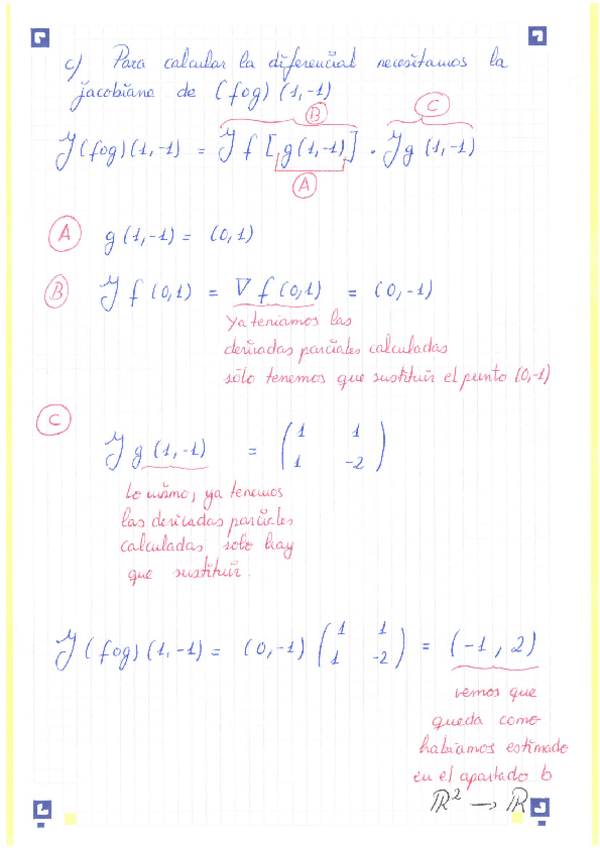 c) Para calcular la diferencial necesitamos la
jacobiana de (fog) (1,-1)
B C
J (fog) (1,-1) = J f [g(1,-1)] · J g (1,-1)
A
A g(1,-1) = (0,1)
B J f (0,1) = ∇ f (0,1) = (0,-1)
Ya teníamos las
derivadas parciales calculadas
sólo tenemos que sustituir el punto (0,-1)
C
J g (1,-1) = ( 1 1
1 -2 )
Lo mismo, ya tenemos
las derivadas parciales
calculadas solo hay
que sustituir.
J (fog) (1,-1) = (0,-1) ( 1 1
1 -2 ) = (-1, 2)
vemos que
queda como
habíamos estimado
en el apartado b
ℝ² → ℝ